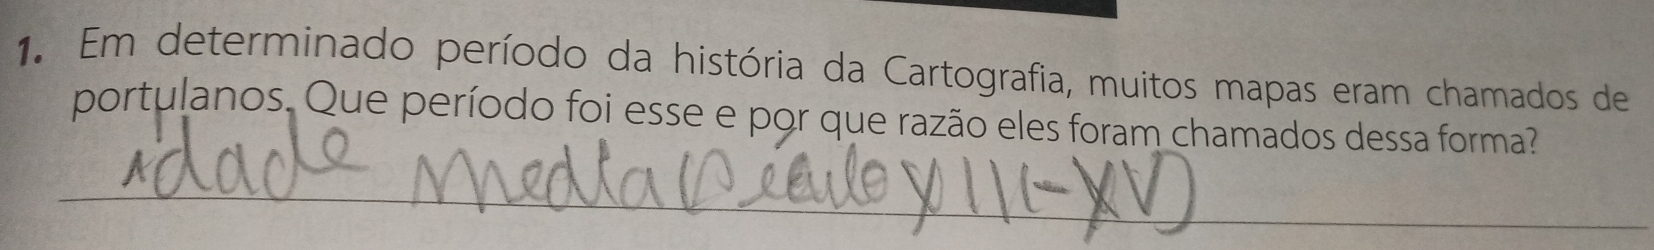 1. Em determinado período da história da Cartografia, muitos mapas eram chamados de
portulanos. Que período foi esse e por que razão eles foram chamados dessa forma?
idade Media (Século XIII-XV)